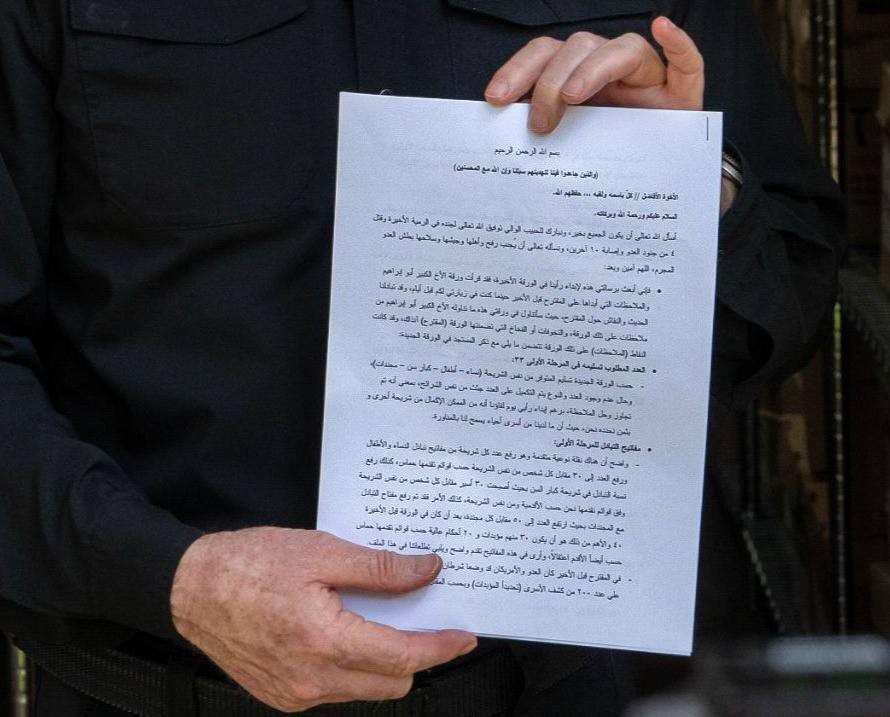 بسم الله الرحمن الرحيم
(والذين جاهدوا فينا لنهدينهم سبلنا وإن الله مع المحسنين)
الأخوة الأفاضل // كلٌ باسمه ولقبه ... حفظهم الله.
السلام عليكم ورحمة الله وبركاته،
أسأل الله تعالى أن يكون الجميع بخير، ونبارك للحبيب الوالي توفيق الله تعالى لجنده في الرمية الأخيرة وقتل
٤ من جنود العدو وإصابة ١٠ آخرين، ونسأله تعالى أن يُجنب رفح وأهلها وجيشها وسلاحها بطش العدو
المجرم، اللهم آمين وبعد:
• فإني أبعث برسالتي هذه لإبداء رأينا في الورقة الأخيرة، فقد قرأت ورقة الأخ الكبير أبو إبراهيم
والملاحظات التي أبداها على المقترح قبل الأخير حينما كنت في زيارتي لكم قبل أيام، وقد تبادلنا
الحديث والنقاش حول المقترح، حيث سأتناول في ورقتي هذه ما تناوله الأخ الكبير أبو إبراهيم من
ملاحظات على تلك الورقة، والتخوفات أو الفخاخ التي تضمنتها الورقة (المقترح) آنذاك، وقد كانت
النقاط (الملاحظات) على تلك الورقة تتضمن ما يلي مع ذكر المستجد في الورقة الجديدة:
• العدد المطلوب تسليمه في المرحلة الأولى ٣٣:
- حسب الورقة الجديدة تسليم المتوفر من نفس الشريحة (نساء – أطفال – كبار سن – مجندات)،
وحال عدم وجود العدد والنوع يتم التكميل على العدد جثث من نفس الشرائح، بمعنى أنه تم
تجاوز وحل الملاحظة، برغم إبداء رأيي يوم لقاؤنا أنه من الممكن الإكمال من شريحة أخرى و
بثمن نحدده نحن، حيث أن ما لدينا من أسرى أحياء يسمح لنا بالمناورة.
• مفاتيح التبادل للمرحلة الأولى:
- واضح أن هناك نقلة نوعية متقدمة وهو رفع عدد كل شريحة من مفاتيح تبادل النساء والأطفال
ورفع العدد إلى ٣٠ مقابل كل شخص من نفس الشريحة حسب قوائم تقدمها حماس، كذلك رفع
نسبة التبادل في شريحة كبار السن بحيث أصبحت ٣٠ أسير مقابل كل شخص من نفس الشريحة
وفق قوائم نقدمها نحن حسب الأقدمية ومن نفس الشريحة، كذلك الأمر فقد تم رفع مفتاح التبادل
مع المجندات بحيث ارتفع العدد إلى ٥٠ مقابل كل مجندة، بعد أن كان في الورقة قبل الأخيرة
٤٠ والأهم من ذلك هو أن يكون ٣٠ منهم مؤبدات و ٢٠ أحكام عالية حسب قوائم تقدمها حماس
حسب أيضاً الأقدم اعتقالاً، وأرى في هذه المفاتيح تقدم واضح ويلبي تطلعاتنا في هذا الملف.
- في المقترح قبل الأخير كان العدو والأمريكان قد وضعا شرطان
على عدد ٢٠٠ من كشف الأسرى (تحديداً المؤبدات) وبحسب